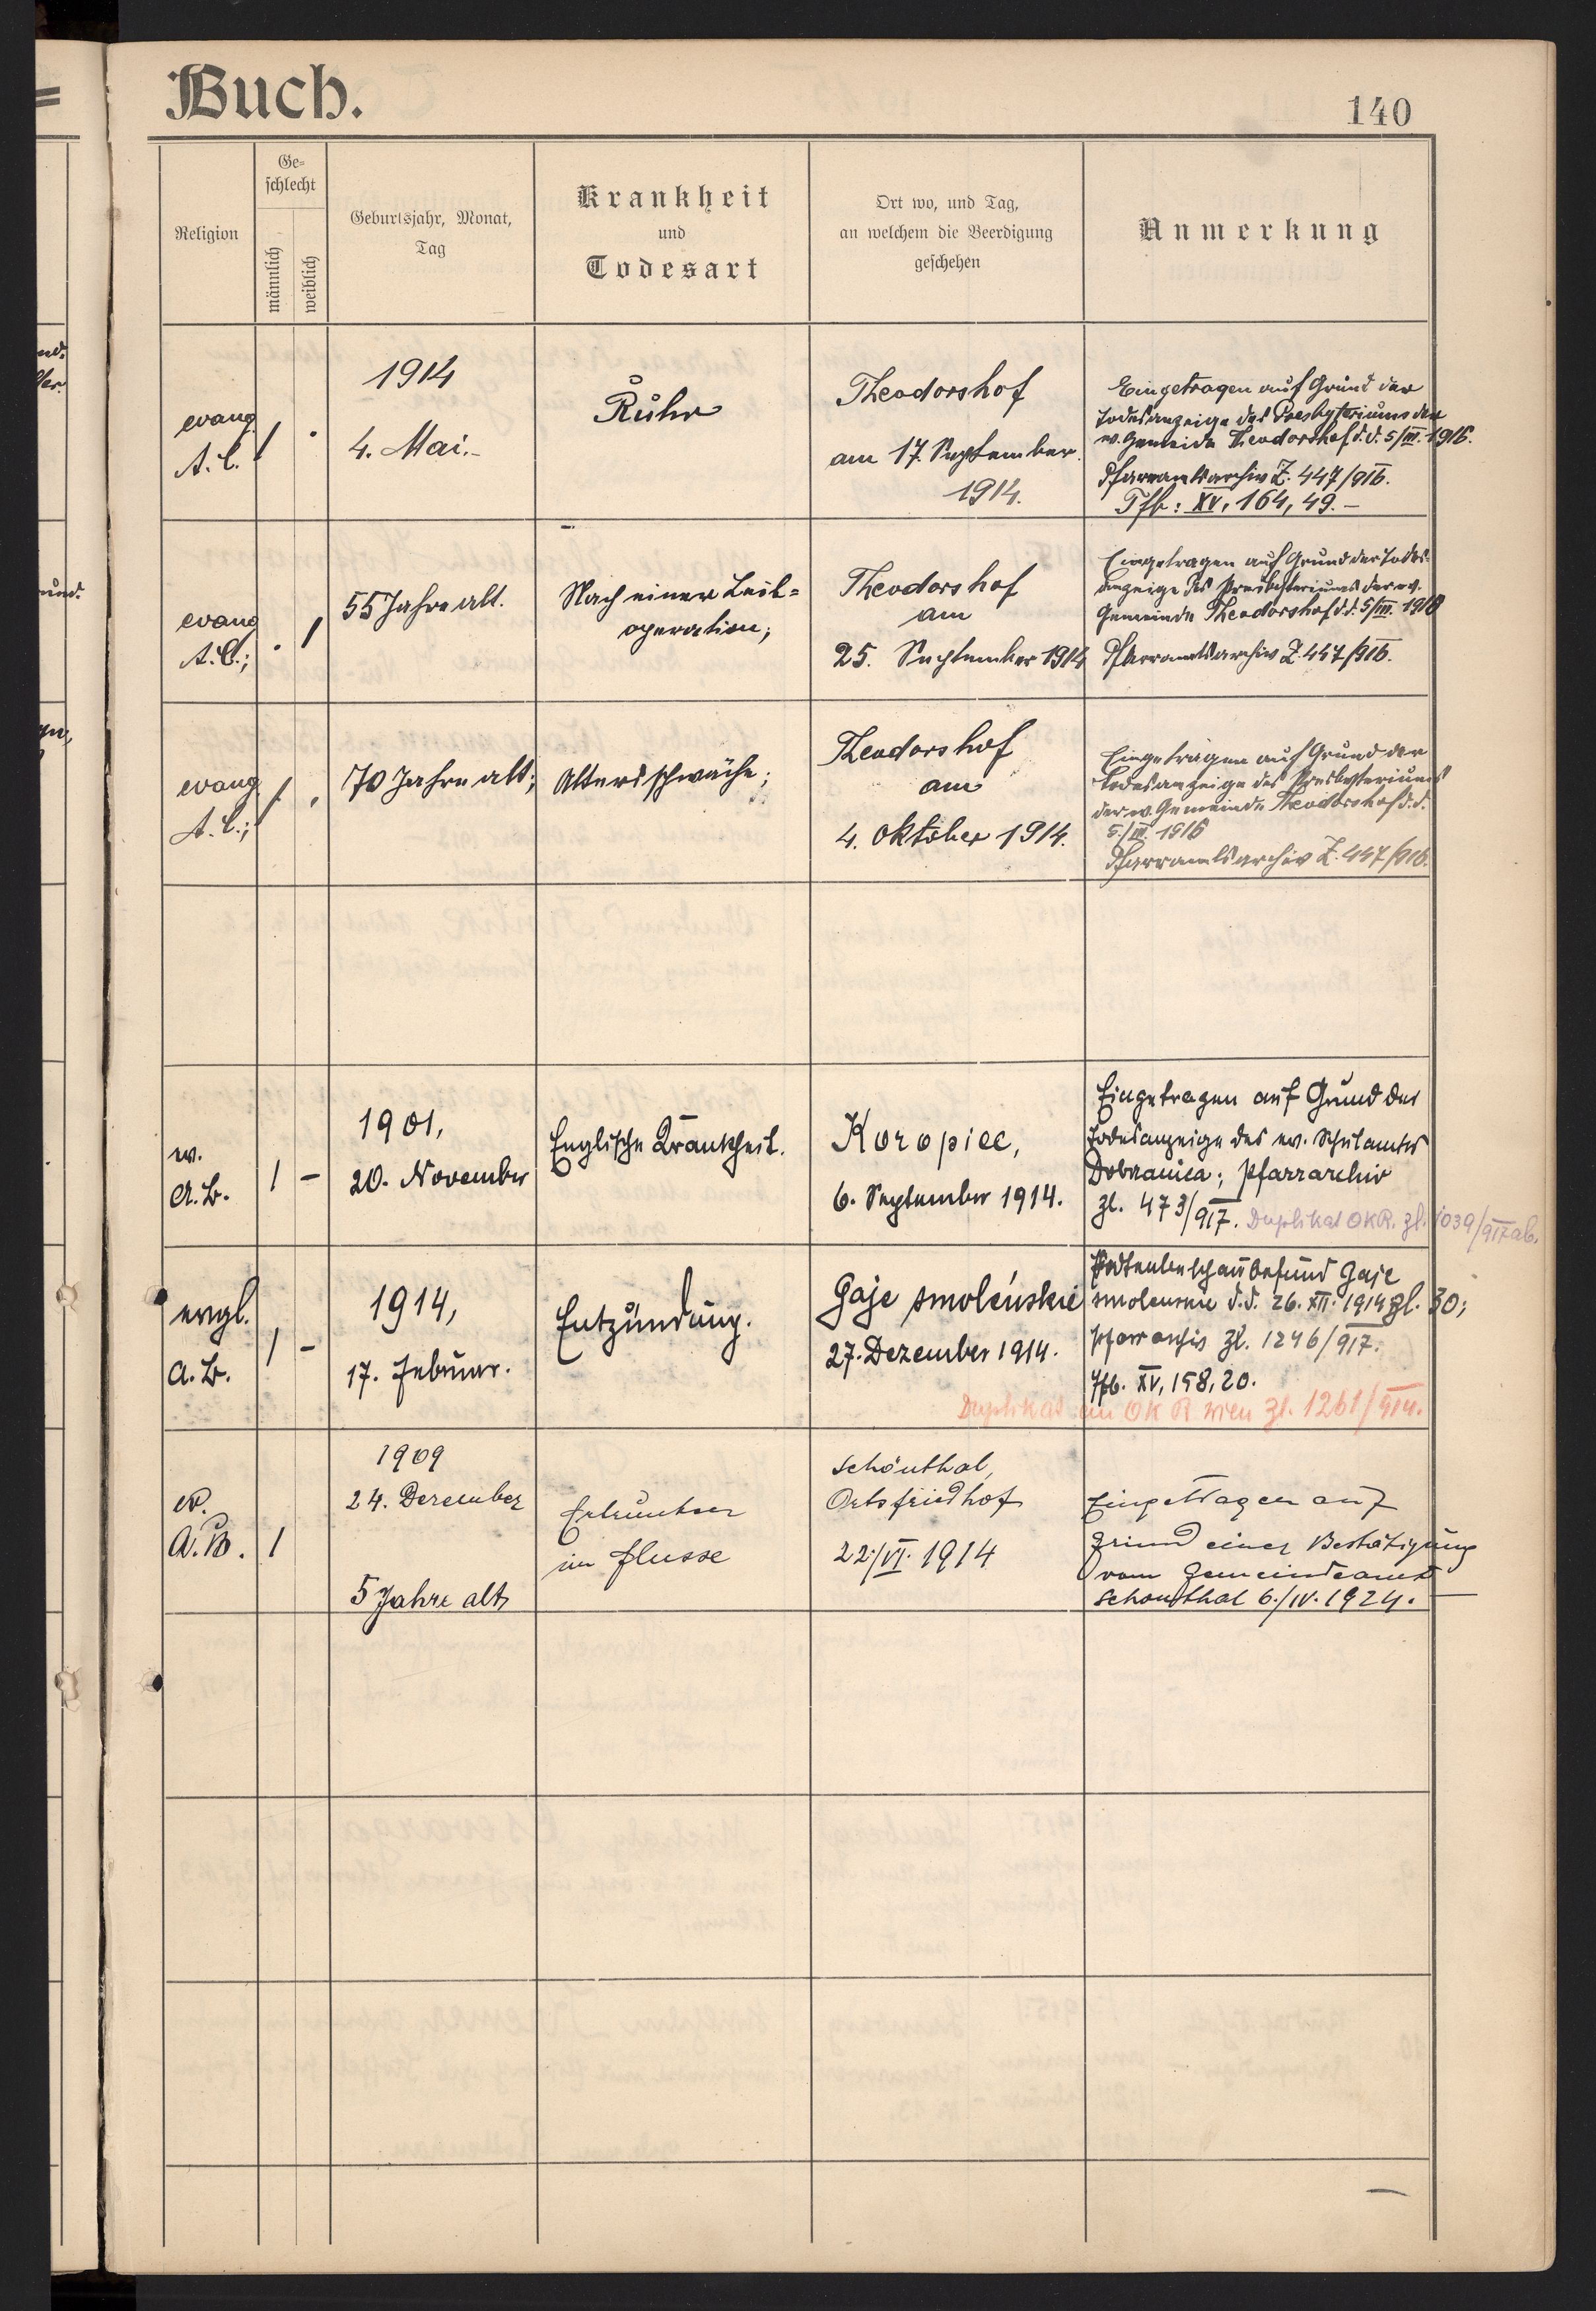 Buch.
140
Religion
Ge-
schlecht
männlich
weiblich
Geburtsjahr, Monat,
Tag
Krankheit
und
Todesart
Ort wo, und Tag,
an welchem die Beerdigung
geschehen
Anmerkung
evang.
A. C.
/ .
1914
4. Mai.-
Ruhr
Theodorshof
am 17. September
1914.
Eingetragen auf Grund der
Todesanzeige des Presbyteriums der
ev. Gemeinde Theodorshof d. d. 5/III. 1916.
Pfarramtsarchiv Z. 447/916.
Tfb: XV, 164, 49.-
evang
A. C.;
. /
55 Jahre alt.
Nach einer Leib-
operation;
Theodorshof
am
25. September 1914
Eingetragen auf Grund der Todes-
anzeige des Presbyteriums der ev.
Gemeinde Theodorshof d. d. 5/III. 1916
Pfarramtsarchiv Z. 447/916.
evang
A. C.;
/ .
70 Jahre alt;
Altersschwäche;
Theodorshof
am
4. Oktober 1914.
Eingetragen auf Grund der
Todesanzeige des Presbyteriums
der ev. Gemeinde Theodorshof d. d.
5./III. 1916
Pfarramtsarchiv Z. 447/916.
ev.
A. B.
1 -
1901,
20. November
Englische Krankheit.
Koropiec,
6. September 1914.
Eingetragen auf Grund der
Todesanzeige des ev. Schulamtes
Dobzanica; Pfarrarchiv
Zl. 473/917. Duplikat OKR. Zl. 1039/917 ab.
evgl.
A. B.
1 -
1914,
17. Februar.
Entzündung.
Gaje smoleńskie
27. Dezember 1914.
Todtenbeschaubefund Gaje
smolenskie d. d. 26. XII. 1914 Zl. 30;
Pfarrarchiv Zl. 1246/917.
Tfb. XV, 158, 20.
Duplikat an OKR Wien Zl. 1261/914.
ev.
A. B.
1
1909
24. Dezember
5 Jahre alt
Ertrunken
im Flusse
Schönthal,
Ortsfriedhof
22./VI. 1914
Eingetragen auf
Grund einer Bestätigung
vom Gemeindeamt
Schönthal 6./IV. 1924.